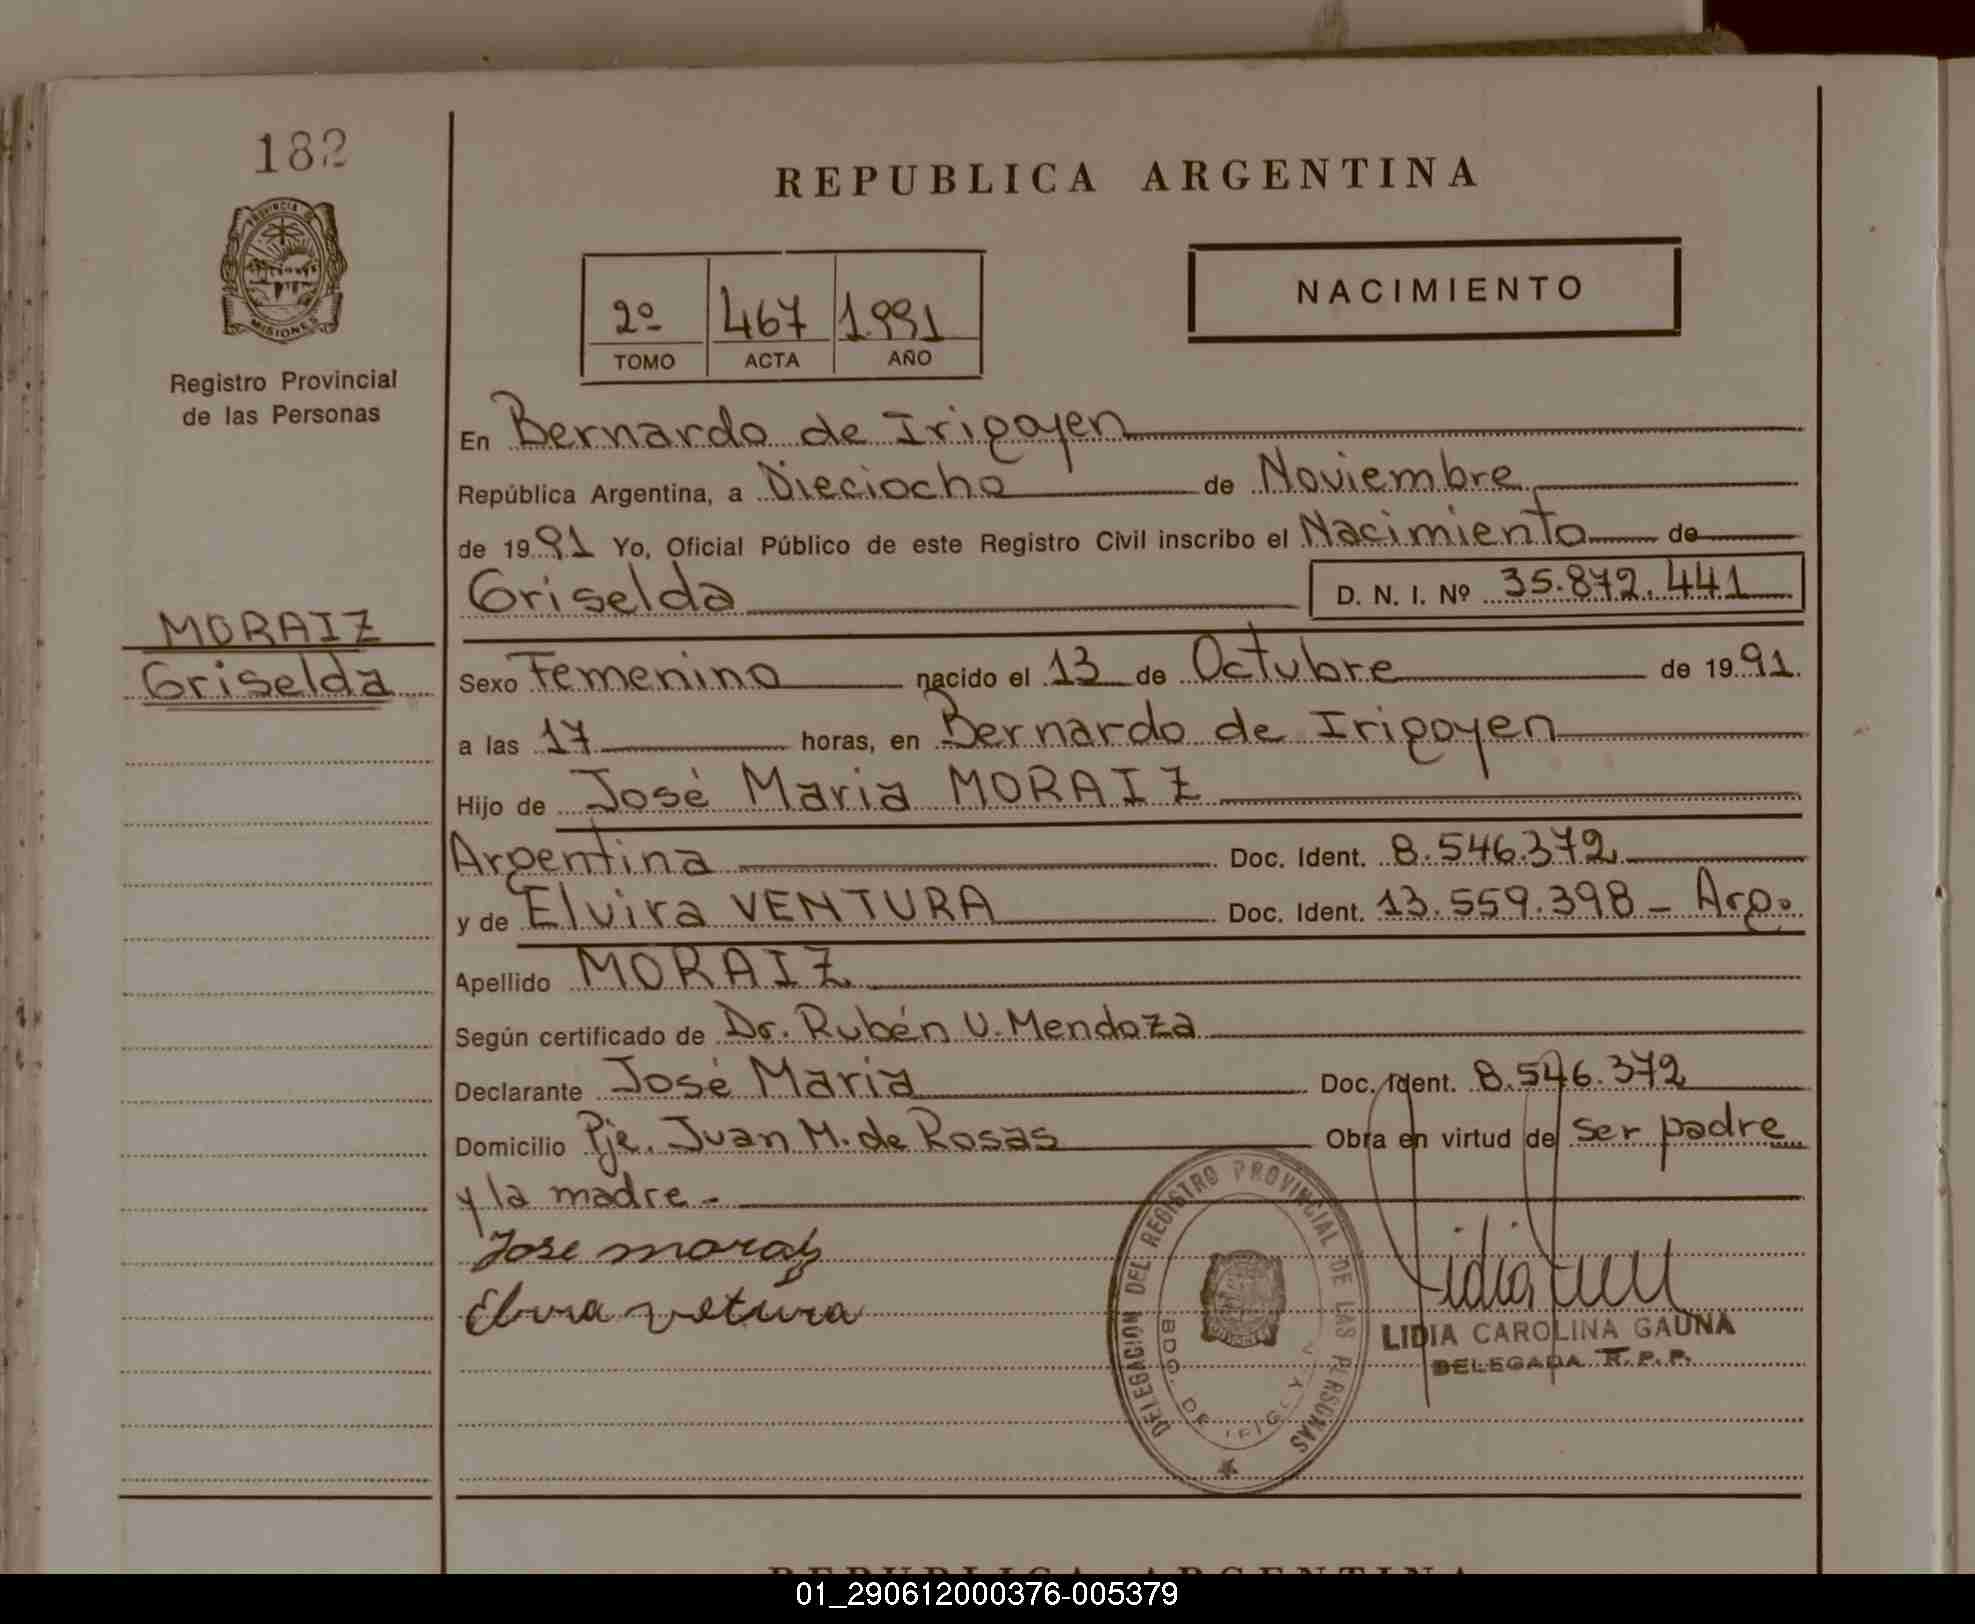 182
PROVINCIA DE
MISIONES
Registro Provincial
de las Personas
MORAIZ
Griselda
REPUBLICA ARGENTINA
2º 467 1.991
TOMO ACTA AÑO
NACIMIENTO
En Bernardo de Irigoyen
República Argentina, a Dieciocho de Noviembre
de 1991 Yo, Oficial Público de este Registro Civil inscribo el Nacimiento de
Griselda D. N. I. Nº 35.872.441
Sexo Femenino nacido el 13 de Octubre de 1991.
a las 17 horas, en Bernardo de Irigoyen
Hijo de José Maria MORAIZ
Argentina Doc. Ident. 8.546.372
y de Elvira VENTURA Doc. Ident. 13.559.398 - Arg.
Apellido MORAIZ
Según certificado de Dr. Rubén U. Mendoza
Declarante José Maria Doc. Ident. 8.546.372
Domicilio Pje. Juan M. de Rosas Obra en virtud de ser padre
y la madre.-
Jose moraiz
Elvira vetura
DELEGACION DEL REGISTRO PROVINCIAL DE LAS PERSONAS
BDO. DE IRIGOYEN
LIDIA CAROLINA GAUNA
DELEGADA R.P.P.
REPUBLICA ARGENTINA
01_290612000376-005379